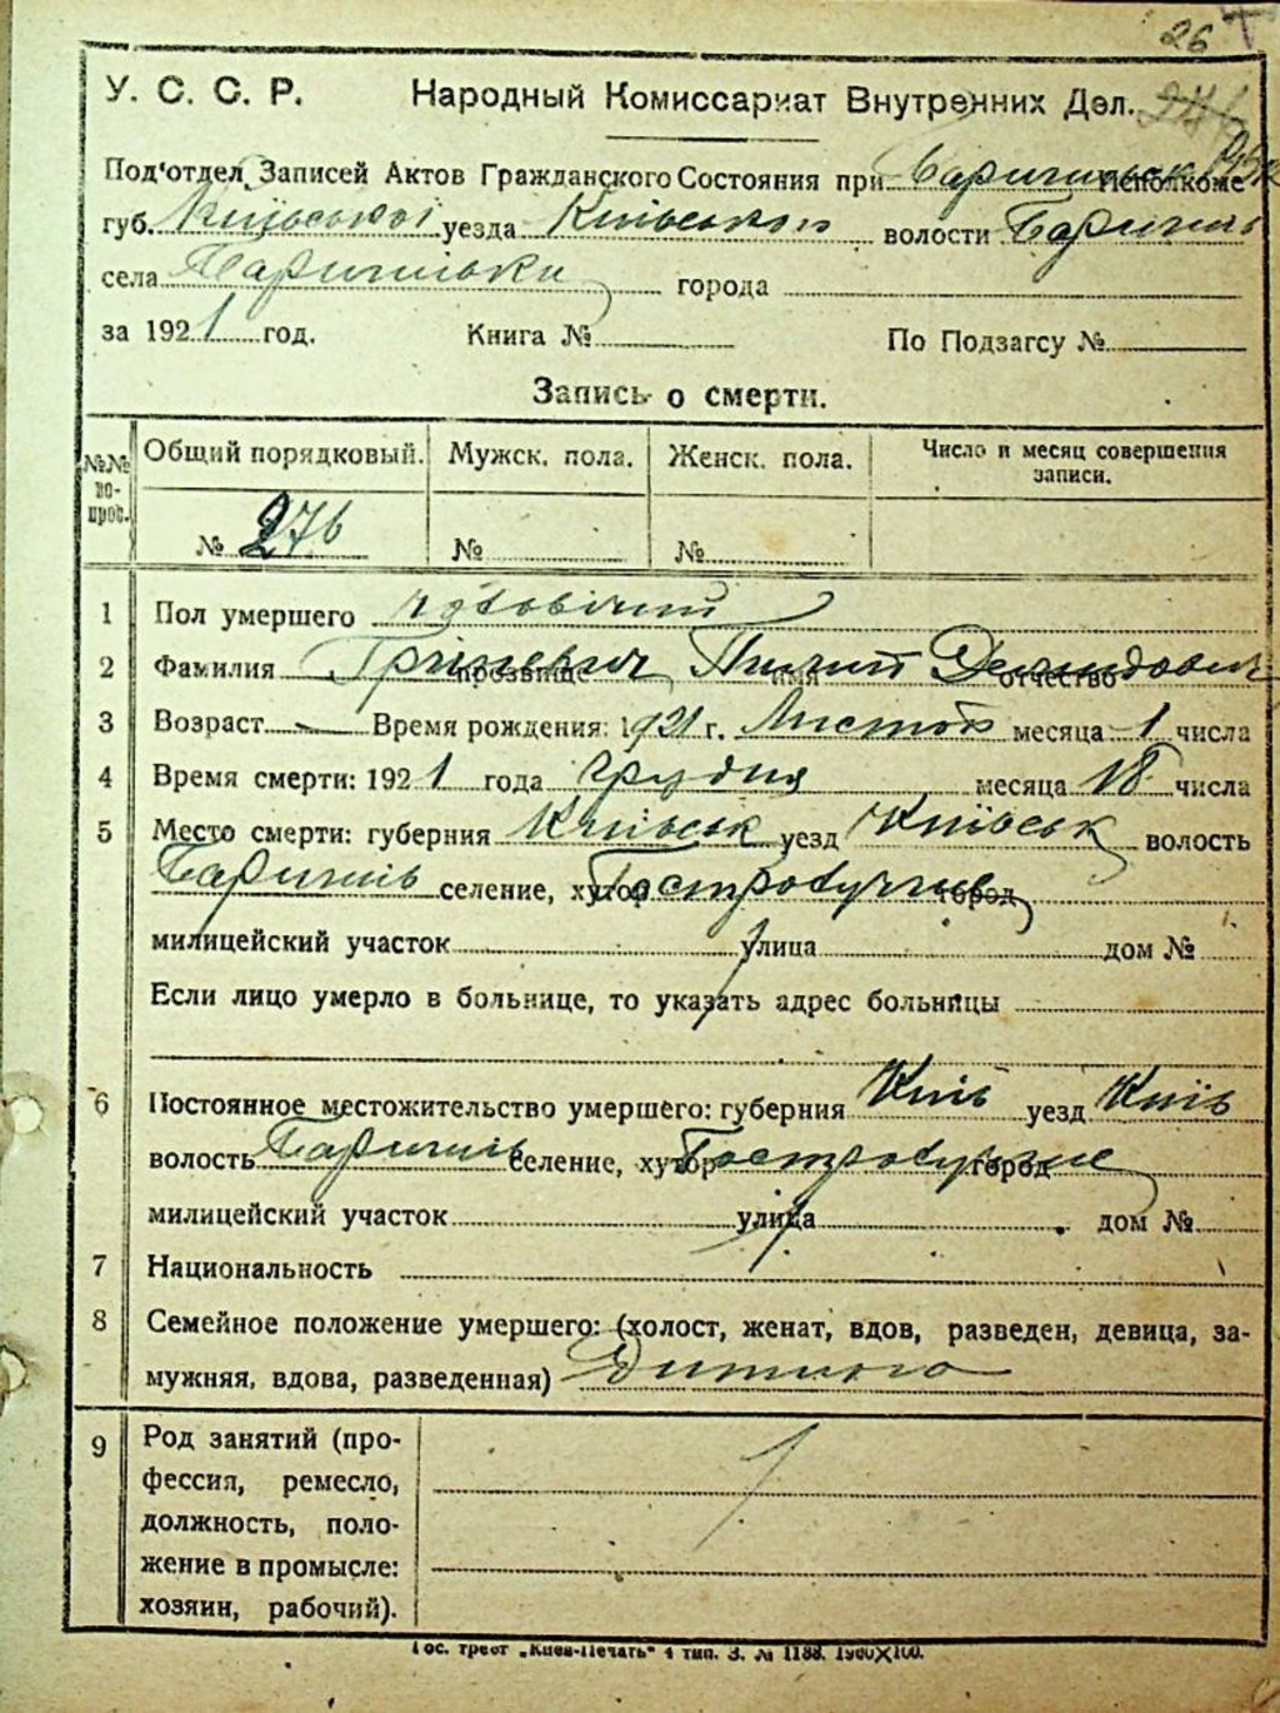 26
У. С. С. Р. Народный Комиссариат Внутренних Дел.
Под'отдел Записей Актов Гражданского Состояния при Исполкоме
губ. Київської уезда Київського волости Баришів
села Баришівки города
за 1921 год. Книга № По Подзагсу №
Запись о смерти.
№№ вопрос. Общий порядковый. Мужск. пола. Женск. пола. Число и месяц совершения записи.
№ 276 № №
1 Пол умершего чоловічий
2 Фамилия Гріневич прозвище имя отчество Демидович
3 Возраст — Время рождения: 1921 г. Листоп месяца 1 числа
4 Время смерти: 1921 года Грудня месяца 18 числа
5 Место смерти: губерния Київськ уезд Київськ волость
Баришів селение, хутор Гостролуччие город
милицейский участок улица дом №
Если лицо умерло в больнице, то указать адрес больницы
6 Постоянное местожительство умершего: губерния Київ уезд Київ
волость Баришів селение, хутор Гостролуччие город
милицейский участок улица дом №
7 Национальность
8 Семейное положение умершего: (холост, женат, вдов, разведен, девица, за-
мужняя, вдова, разведенная) Дитина
9 Род занятий (про-
фессия, ремесло,
должность, поло-
жение в промысле:
хозяин, рабочий).
Гос. трест „Киев-Печать" 4 тип. З. № 1188. 1960×100.